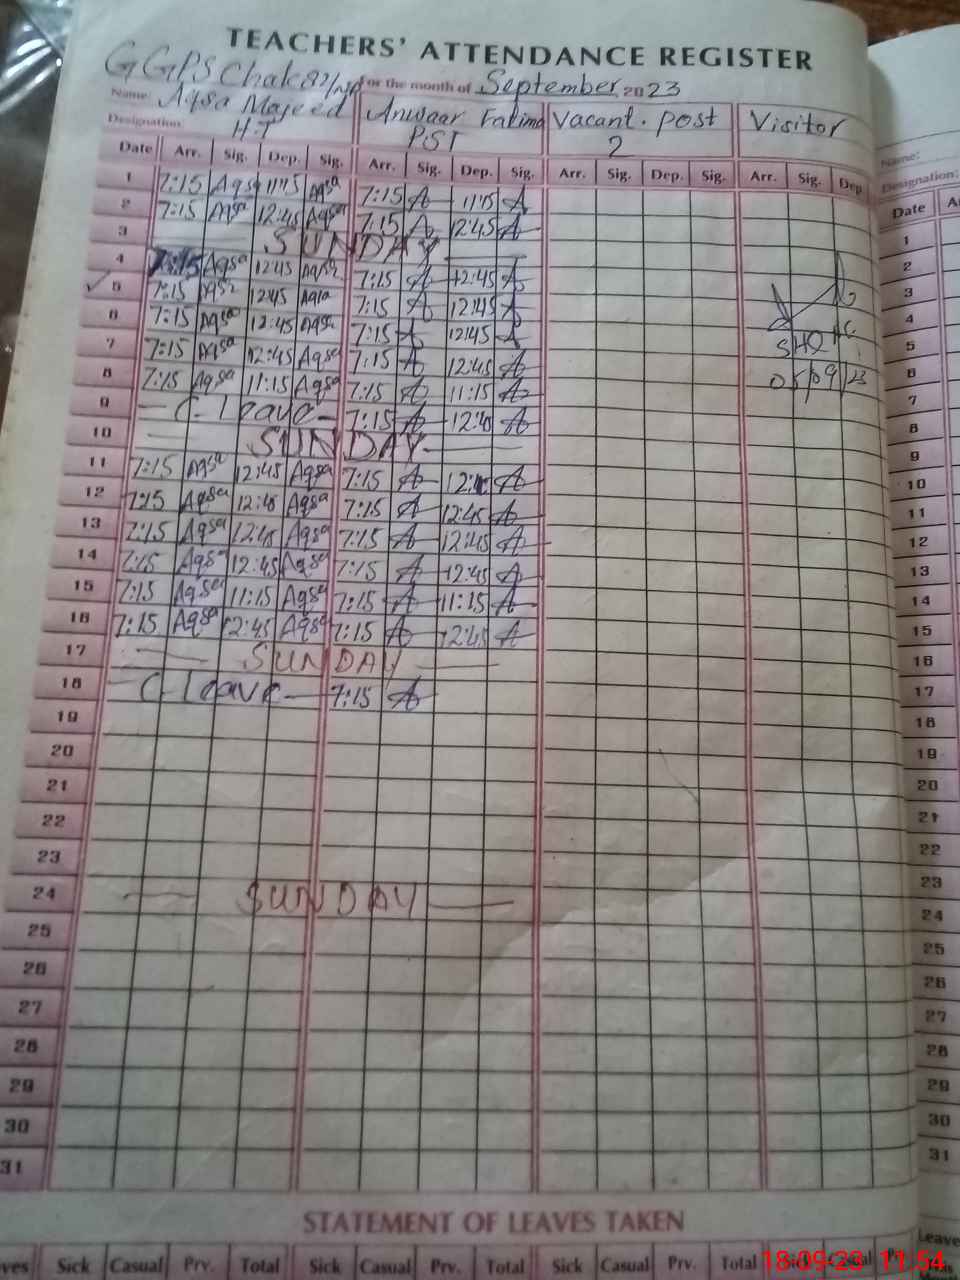 TEACHERS' ATTENDANCE REGISTER
GGPS Chak 87/ For the month of September 2023
Name: Aqsa Majeed Anwaar Fatima Vacant. Post Visitor
Designation: H.T PST 2
Name:
Designation:
Date Arr. Sig. Dep. Sig. Arr. Sig. Dep. Sig. Arr. Sig. Dep. Sig. Arr. Sig. Dep.
Date
1 7:15 Aqsa 11:15 Aqsa 7:15 A 11:15 A
2 7:15 Aqsa 12:45 Aqsa 7:15 A 12:45 A
3 SUNDAY
4 7:15 Aqsa 12:45 Aqsa 7:15 A 12:45 A
5 7:15 Aqsa 12:45 Aqsa 7:15 A 12:45 A
6 7:15 Aqsa 12:45 Aqsa 7:15 A 12:45 A
7 7:15 Aqsa 12:45 Aqsa 7:15 A 12:45 A
8 7:15 Aqsa 11:15 Aqsa 7:15 A 11:15 A
05/09/23
9 C. leave 7:15 A 12:40 A
10 SUNDAY
11 7:15 Aqsa 12:45 Aqsa 7:15 A A
12 7:15 Aqsa 12:45 Aqsa 7:15 A 12:45 A
13 7:15 Aqsa 12:45 Aqsa 7:15 A 12:45 A
14 7:15 Aqsa 12:45 Aqsa 7:15 A 12:45 A
15 7:15 Aqsa 11:15 Aqsa 7:15 A 11:15 A
16 7:15 Aqsa 12:45 Aqsa 7:15 A 12:45 A
17 SUNDAY
18 C. leave 7:15 A
19
20
21
22
23
24 SUNDAY
25
26
27
28
29
30
31
1
2
3
4
5
6
7
8
9
10
11
12
13
14
15
16
17
18
19
20
21
22
23
24
25
26
27
28
29
30
31
STATEMENT OF LEAVES TAKEN
Sick Casual Prv. Total Sick Casual Prv. Total Sick Casual Prv. Total Sick Casual
Leave
18-09-23 11:54